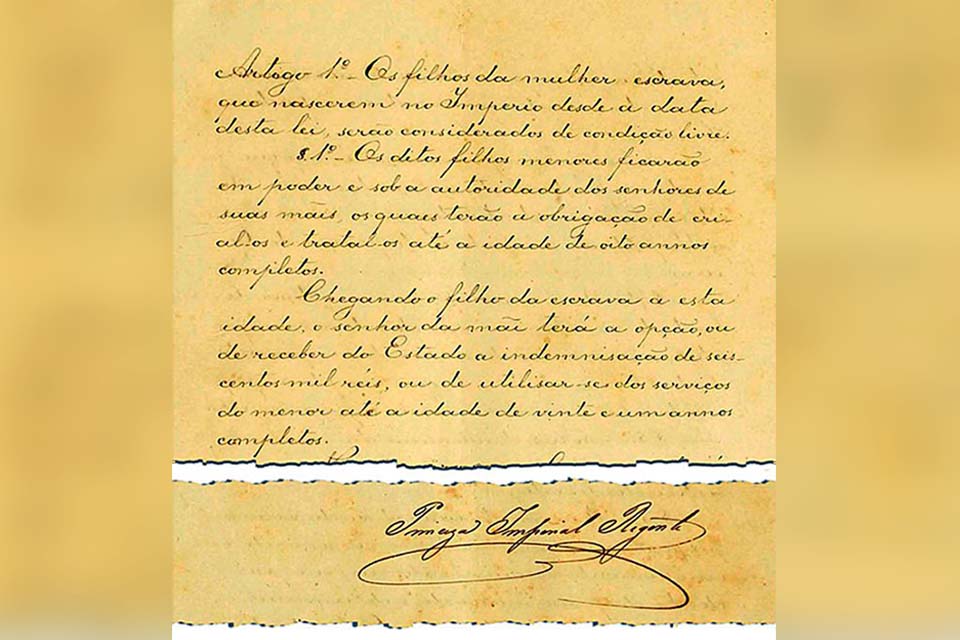 Artogo 1º_ Os filhos da mulher escrava,
que nascerem no Imperio desde a data
desta lei, serão considerados de condição livre.
§. 1º_ Os ditos filhos menores ficarão
em poder e sob a autoridade dos senhores de
suas mãis, os quaes terão a obrigação de cri-
al-os e tratal-os até a idade de oito annos
completos.
Chegando o filho da escrava a esta
idade, o senhor da mãi terá a opção, ou
de receber do Estado a indemnisação de seis-
centos mil réis, ou de utilisar-se dos serviços
do menor até a idade de vinte e um annos
completos.
Princeza Imperial Regente